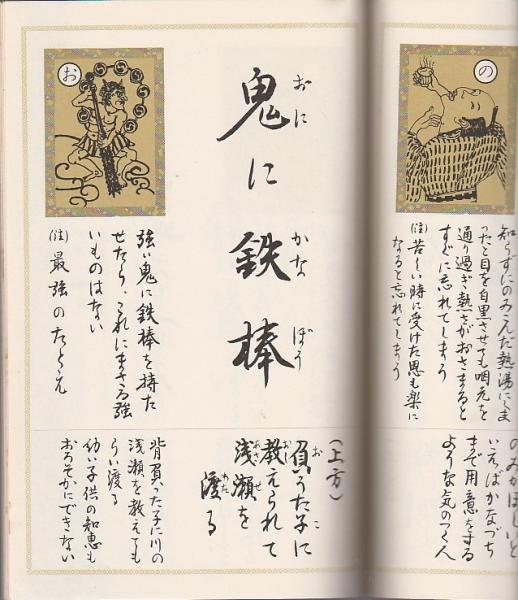 の
知らずにのみこんだ熱湯にしま
ったと目を白黒させても咽元を
通り過ぎ熱さがおさまると
すぐに忘れてしまう
(注)苦しい時に受けた恩も楽に
なると忘れてしまう
のみがほしいと
いえばかなづち
まで用意をする
ような気のつく人
鬼に鉄棒
おに かなぼう
お
強い鬼に鉄棒を持た
せたら、これにまさる強
いものはない
(注)最強のたとえ
(上方)
負うた子に
お こ
教えられて
おし
浅瀬を
あさせ
渡る
わた
背負った子に川の
浅瀬を教えても
らい渡る
幼い子供の知恵も
おろそかにできない